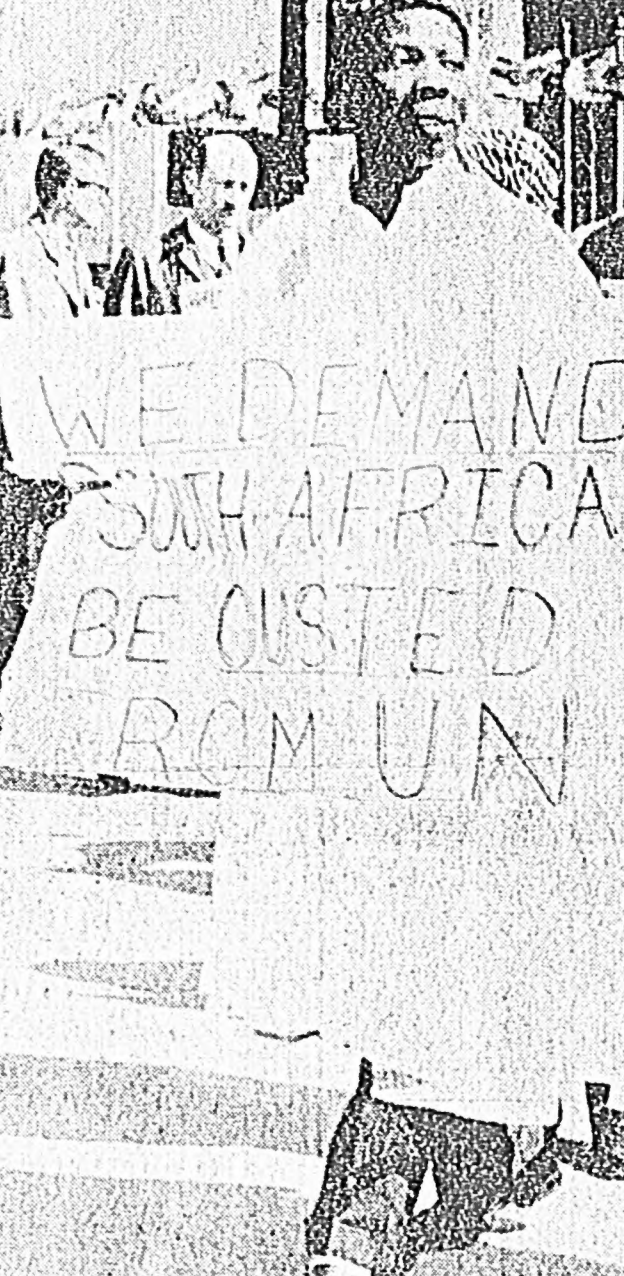 WE DEMAND
SOUTH AFRICA
BE OUSTED
ROM UN